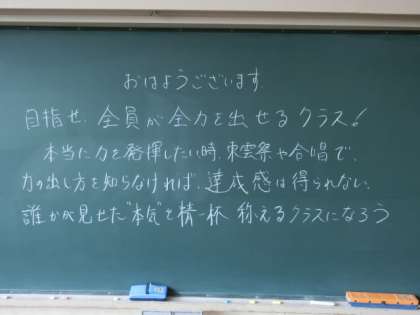 おはようございます.
目指せ、全員が全力を出せるクラス!
本当に力を発揮したい時、東雲祭や合唱で、
力の出し方を知らなければ、達成感は得られない、
誰かが見せた"本気"を精一杯 称えるクラスになろう